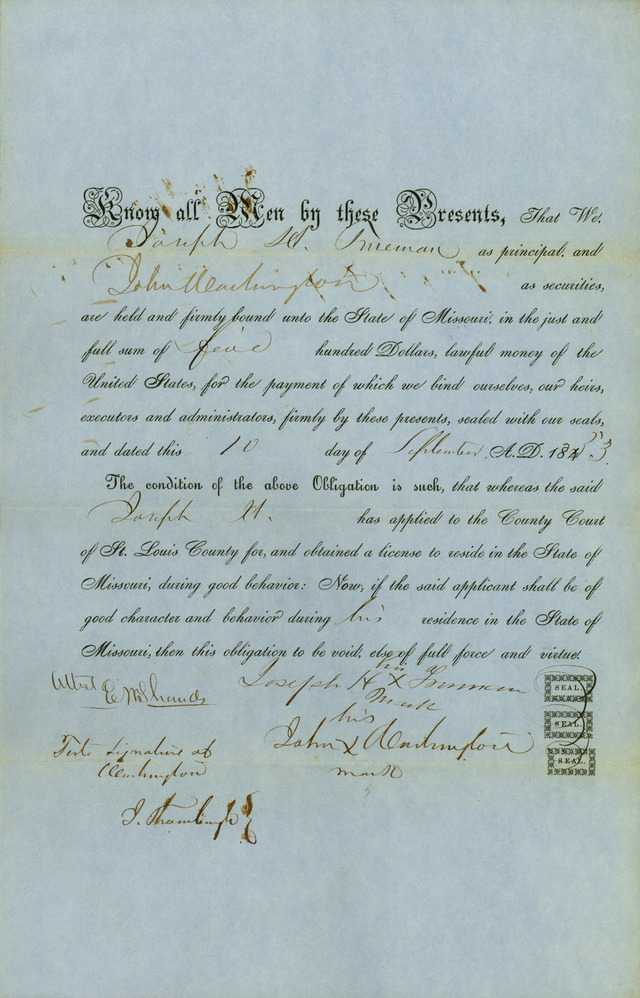 Know all Men by these Presents, That We,
Joseph H. Freeman as principal, and
John Washington as securities,
are held and firmly bound unto the State of Missouri, in the just and
full sum of five hundred Dollars, lawful money of the
United States, for the payment of which we bind ourselves, our heirs,
executors and administrators, firmly by these presents, sealed with our seals,
and dated this 10 day of September A.D. 1853
The condition of the above Obligation is such, that whereas the said
Joseph H. has applied to the County Court
of St. Louis County for, and obtained a license to reside in the State of
Missouri, during good behavior: Now, if the said applicant shall be of
good character and behavior during his residence in the State of
Missouri, then this obligation to be void, else of full force and virtue.
his
Attest Joseph H X Freeman SEAL.
mark
his SEAL.
John X Washington
mark SEAL.
Test Signature of
Washington